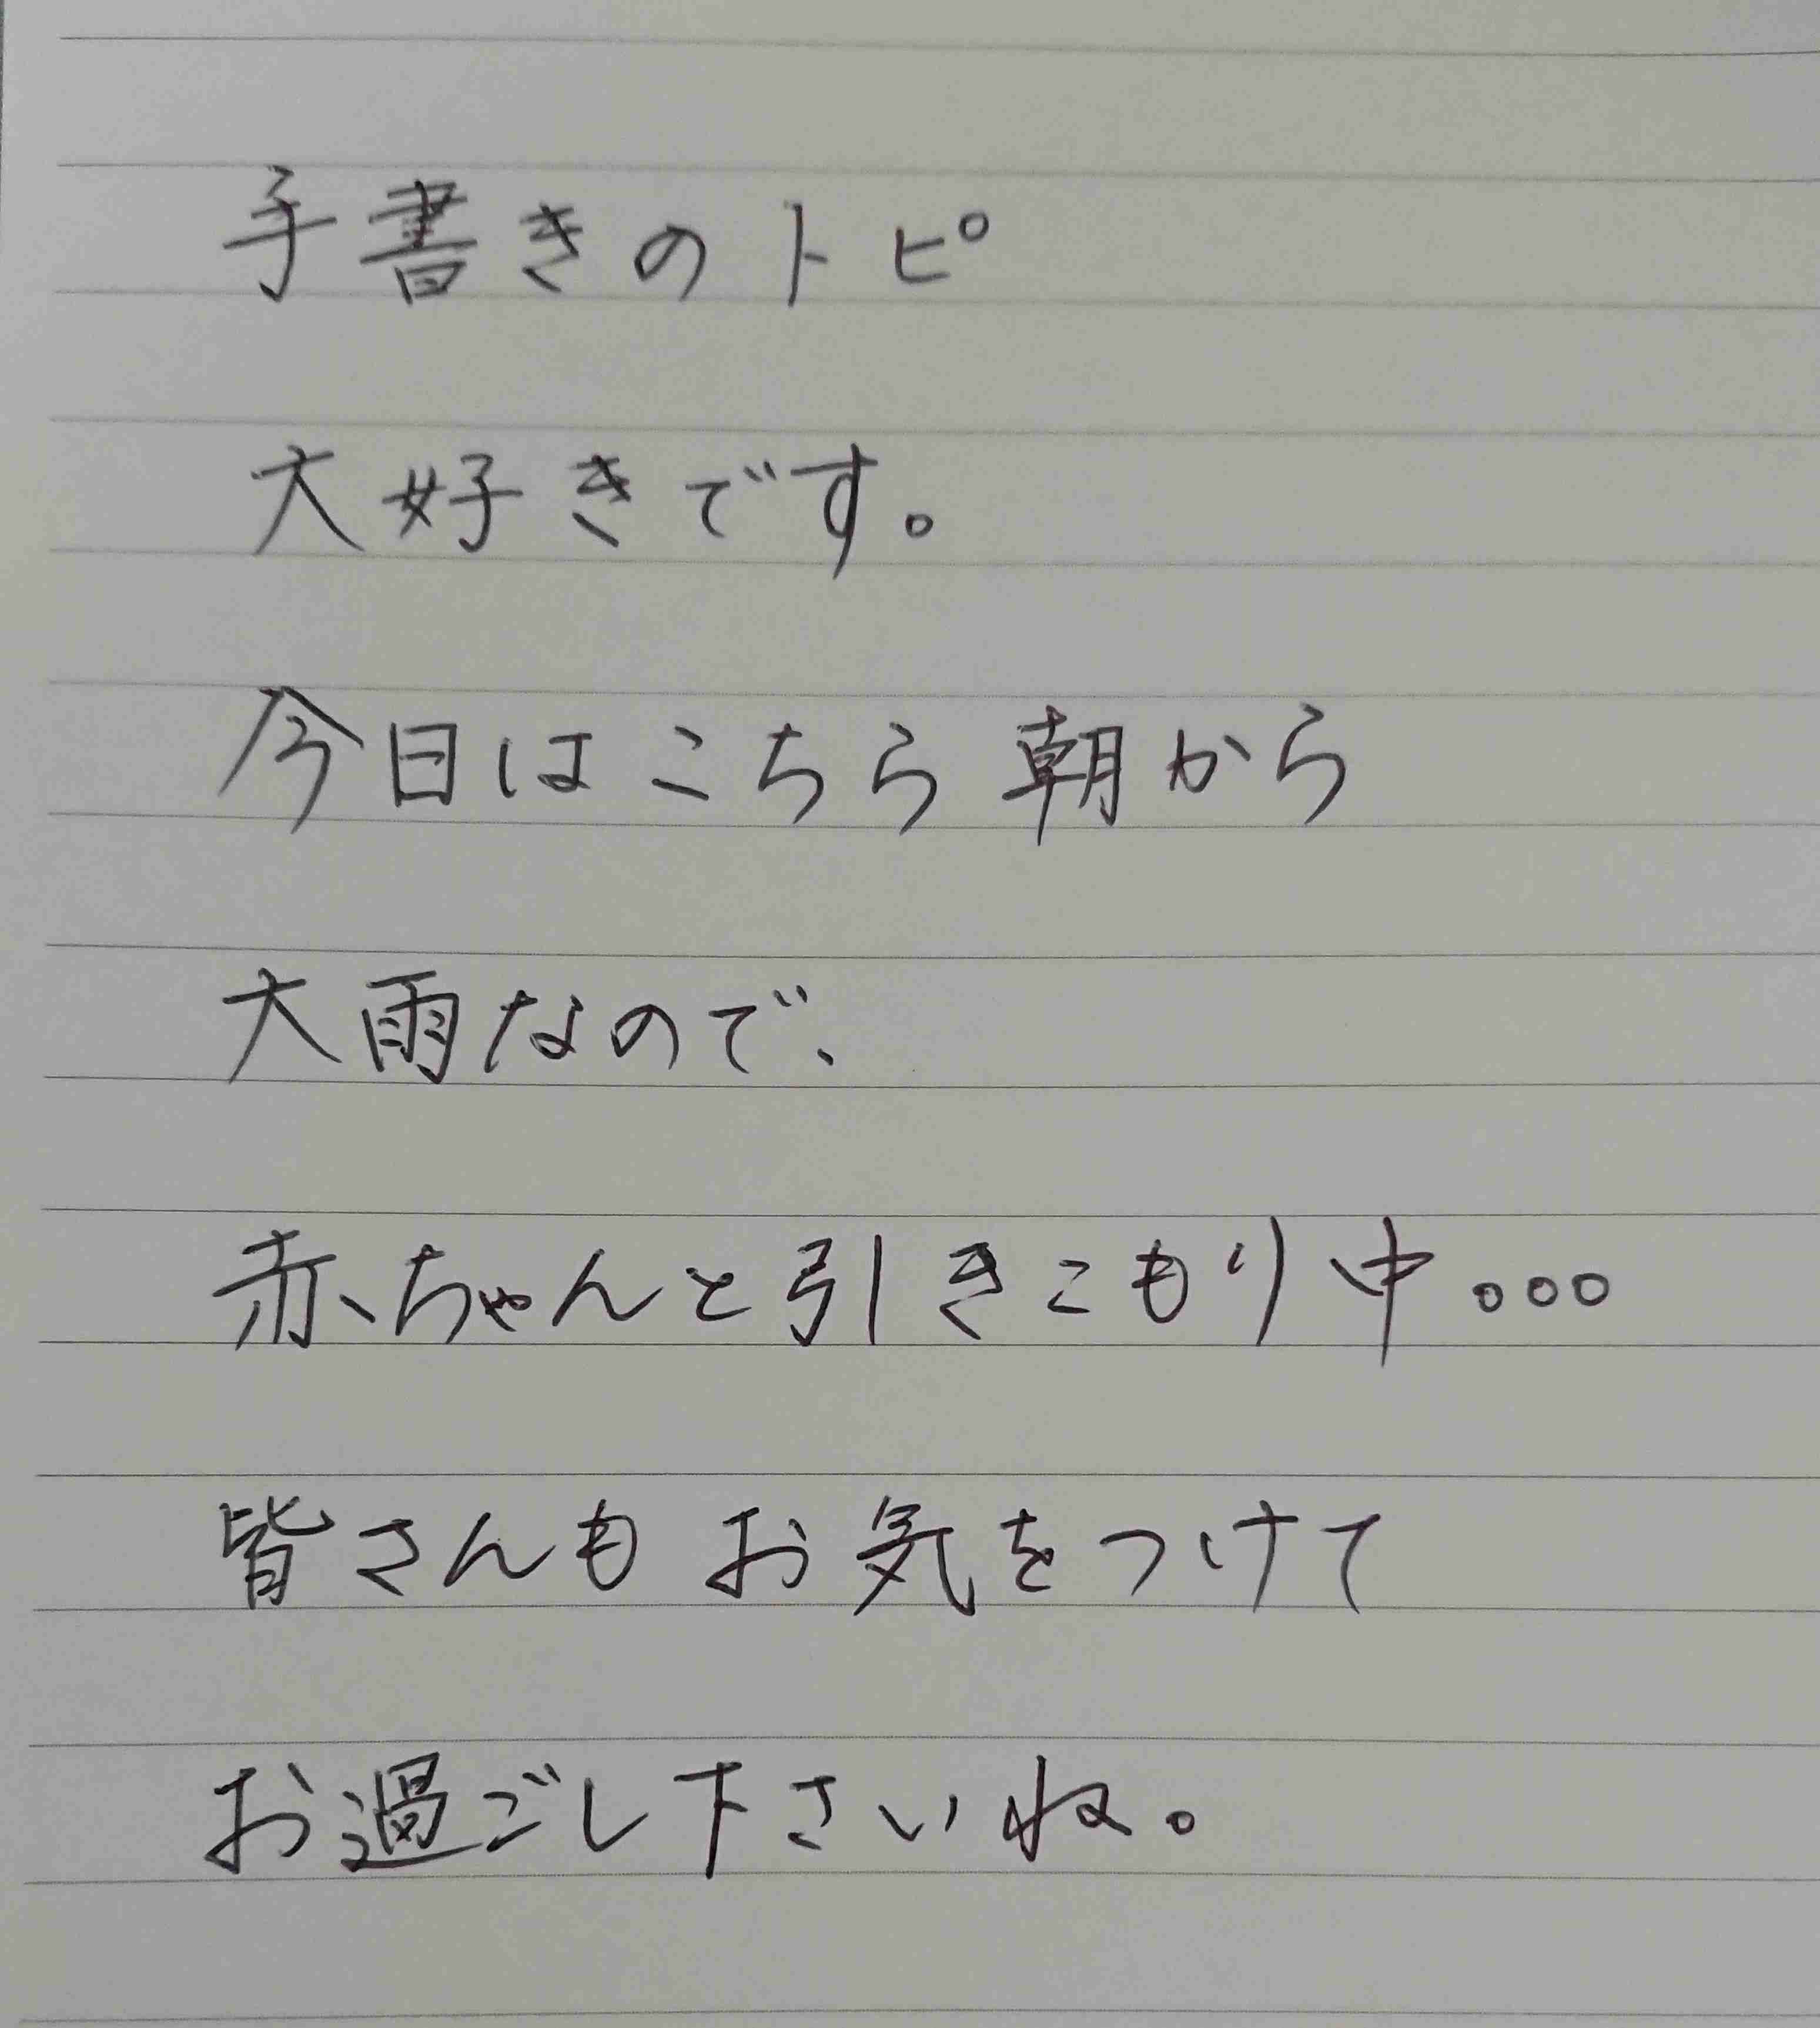 手書きのトピ
大好きです。
今日はこちら朝から
大雨なので、
赤ちゃんと引きこもり中。。。
皆さんもお気をつけて
お過ごし下さいね。